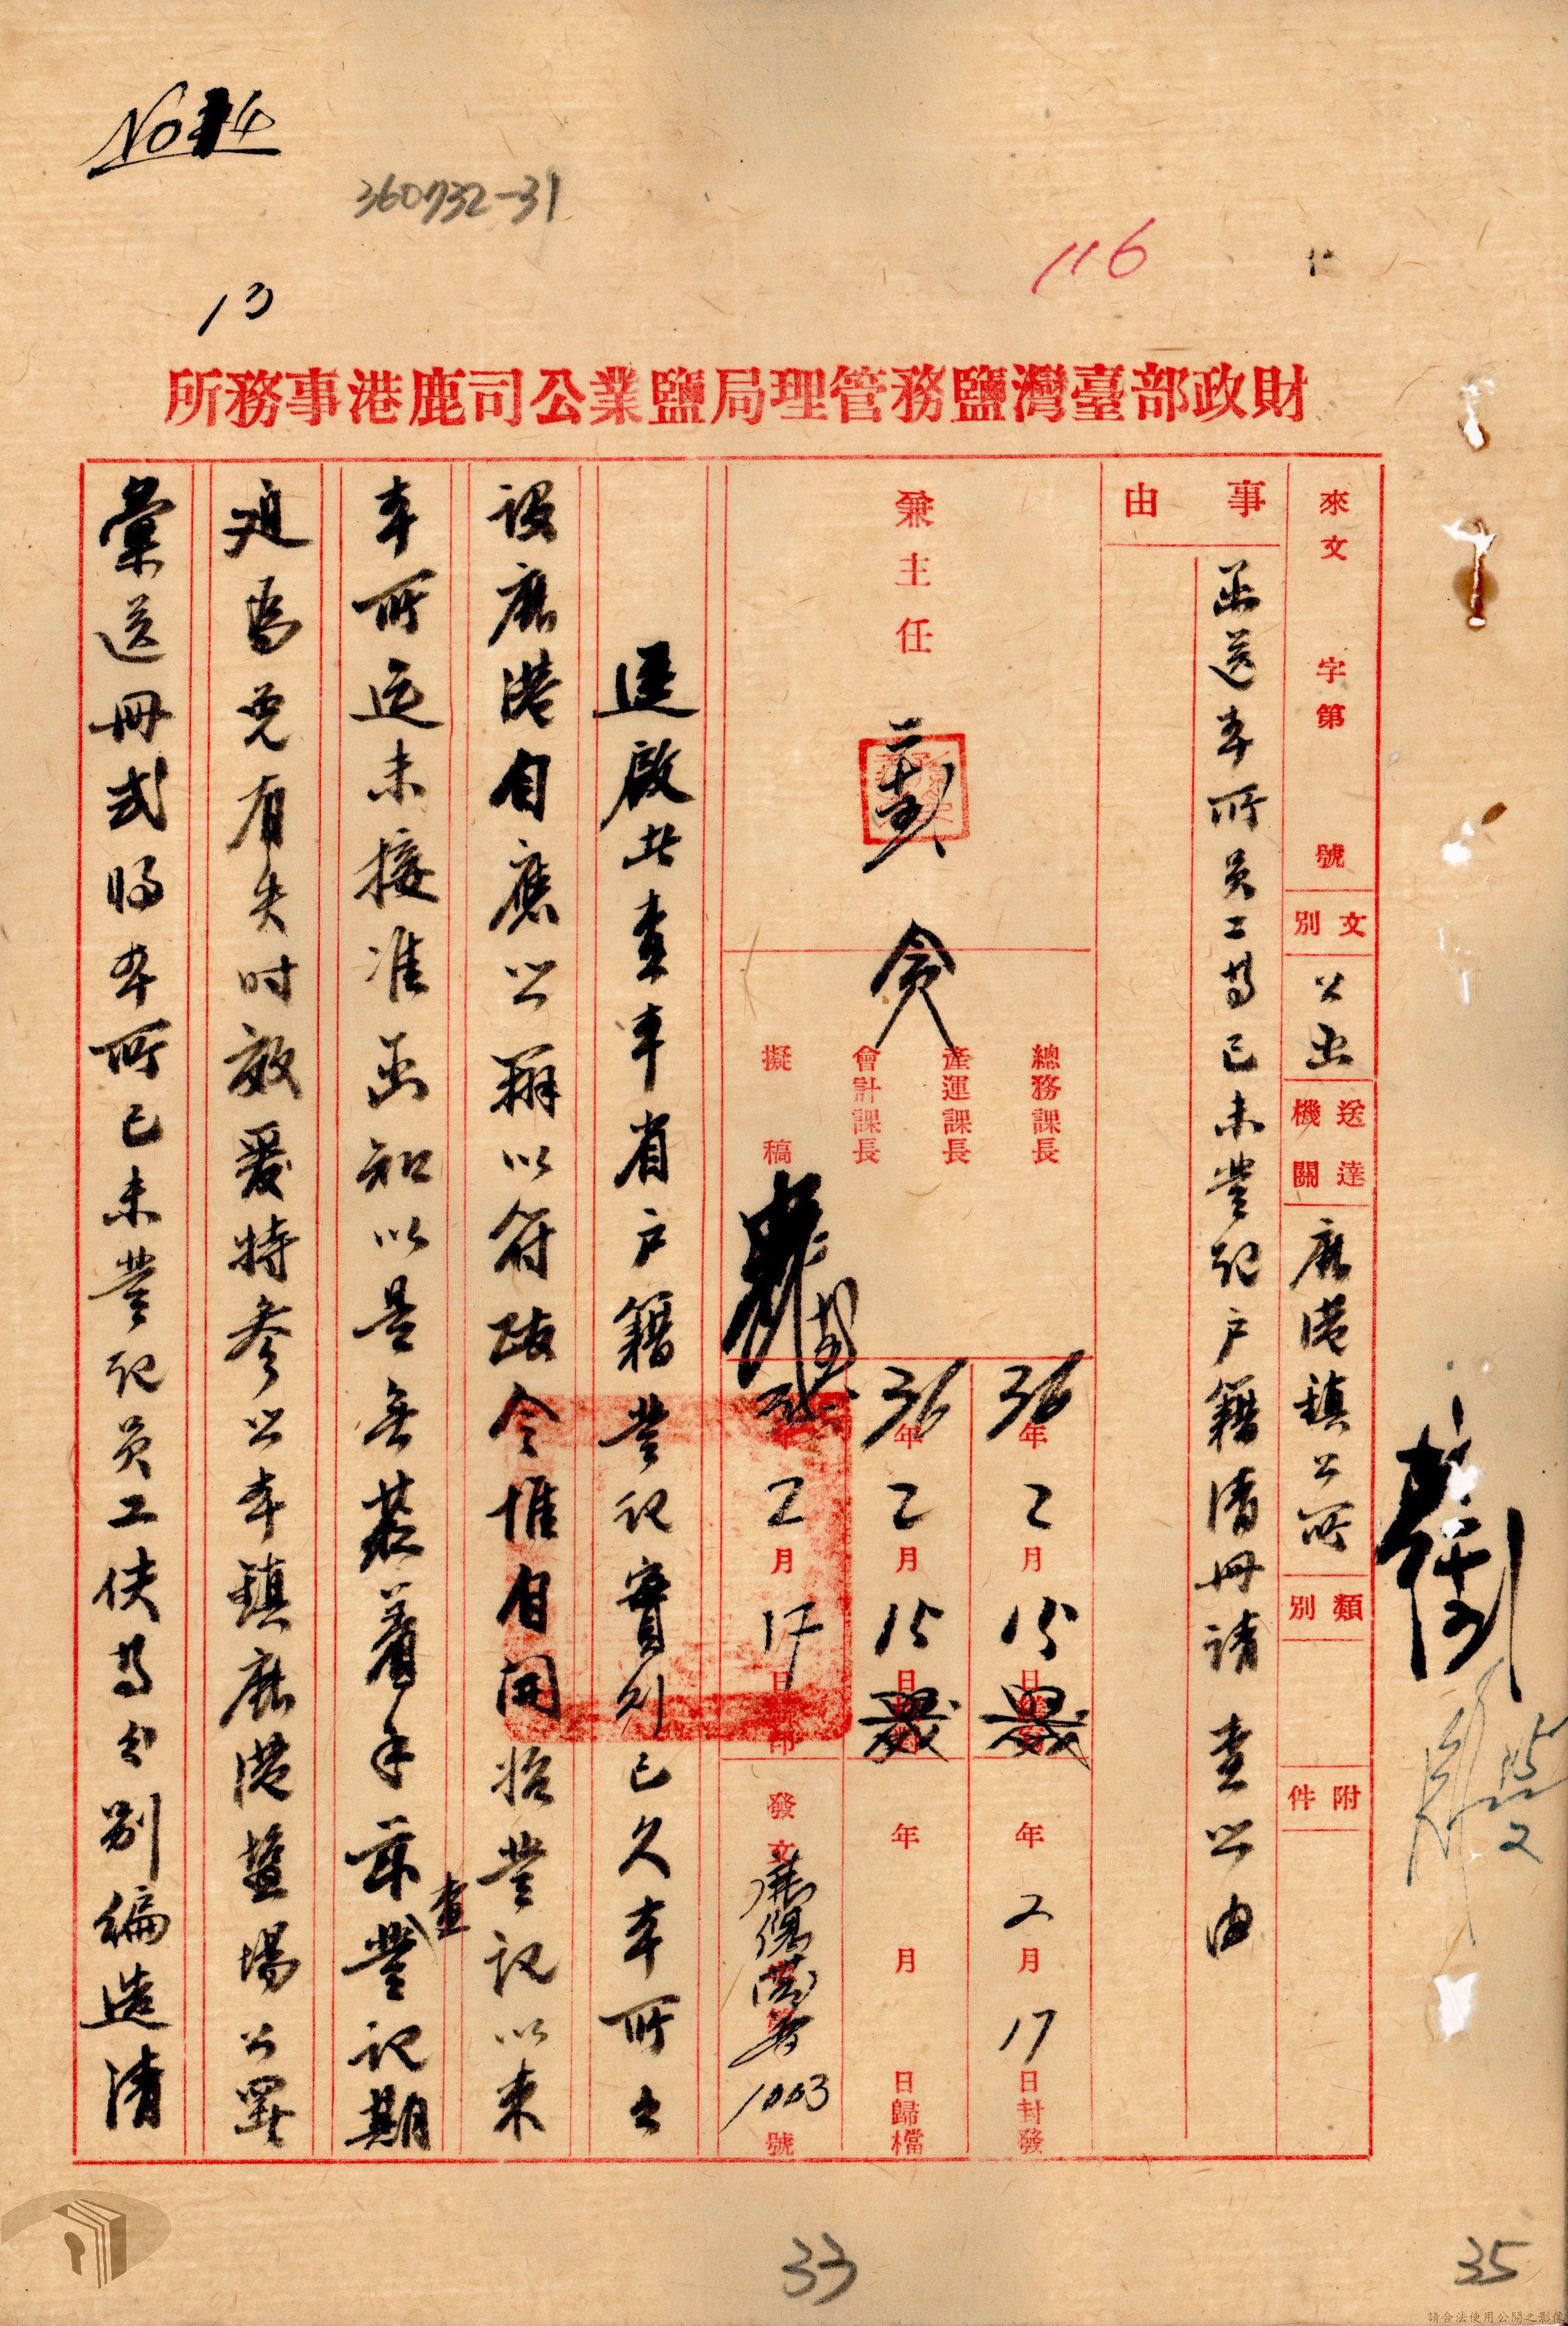 No 14
360732-31
116
13
財政部臺灣鹽務管理局鹽業公司鹿港事務所
來文 字第 號
文別 公函
送達機關 鹿港鎮公所
類別
附件
事由
函送本所員工等已未登記戶籍清冊請 查照由
兼主任
總務課長
產運課長
會計課長
擬稿
36年2月15日
年2月17日封發
36年2月15日
年 月 日歸檔
年2月17日 印
發文 1003號
逕啟者查本省戶籍登記實列已久本所之
設鹿港自應照辦以符政令惟自開始登記以來
本所迄未接准函知以是無從着手辦登記查期
迫為免有失時效爰特參照本鎮鹿港鹽場公署
彙送冊式將本所已未登記員工伕等分別編造清
33
35
請合法使用公開之影像